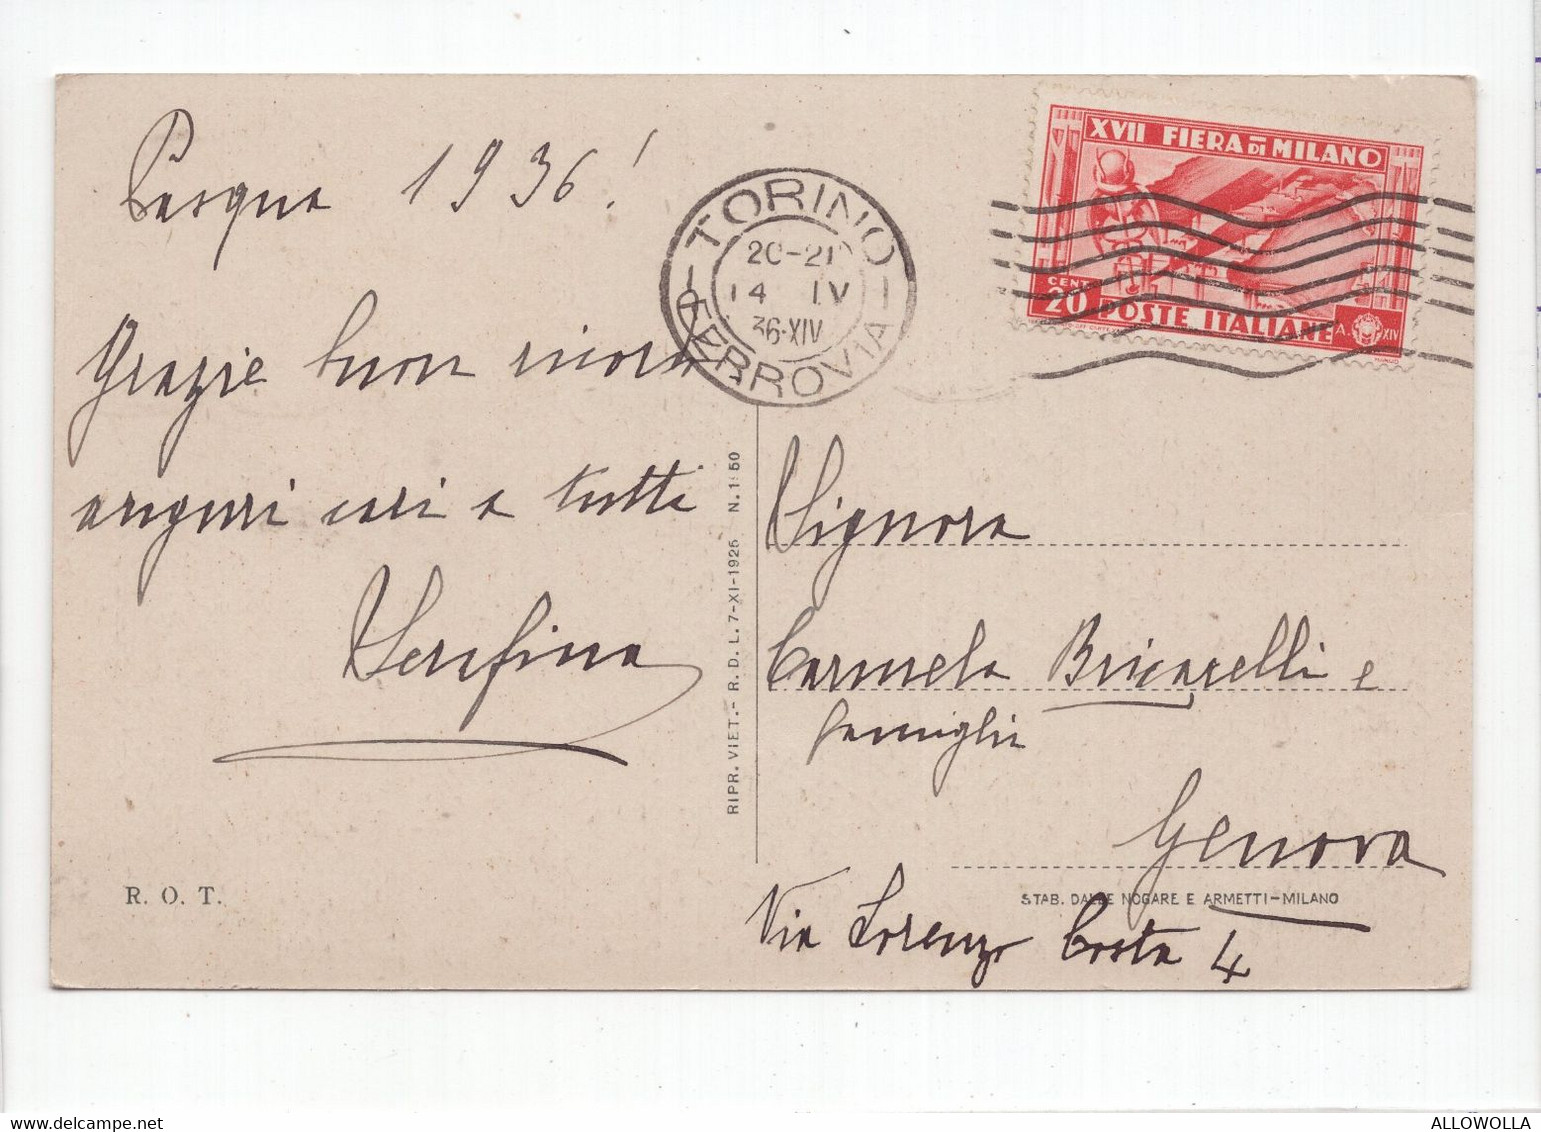 Pasqua 1936!
Grazie buon ricordo
auguri cari a tutti
Serafina
R. O. T.
RIPR. VIET.- R. D. L. 7-XI-1925 N. 1 50
TORINO
20-21
14 IV
36·XIV
FERROVIA
XVII FIERA DI MILANO
CENT.
20
POSTE ITALIANE
A. XIV
Signora
Carmela Bricarelli e
famiglia
Genova
STAB. DALLE NOGARE E ARMETTI-MILANO
Via Lorenzo Costa 4
ALLOWOLLA